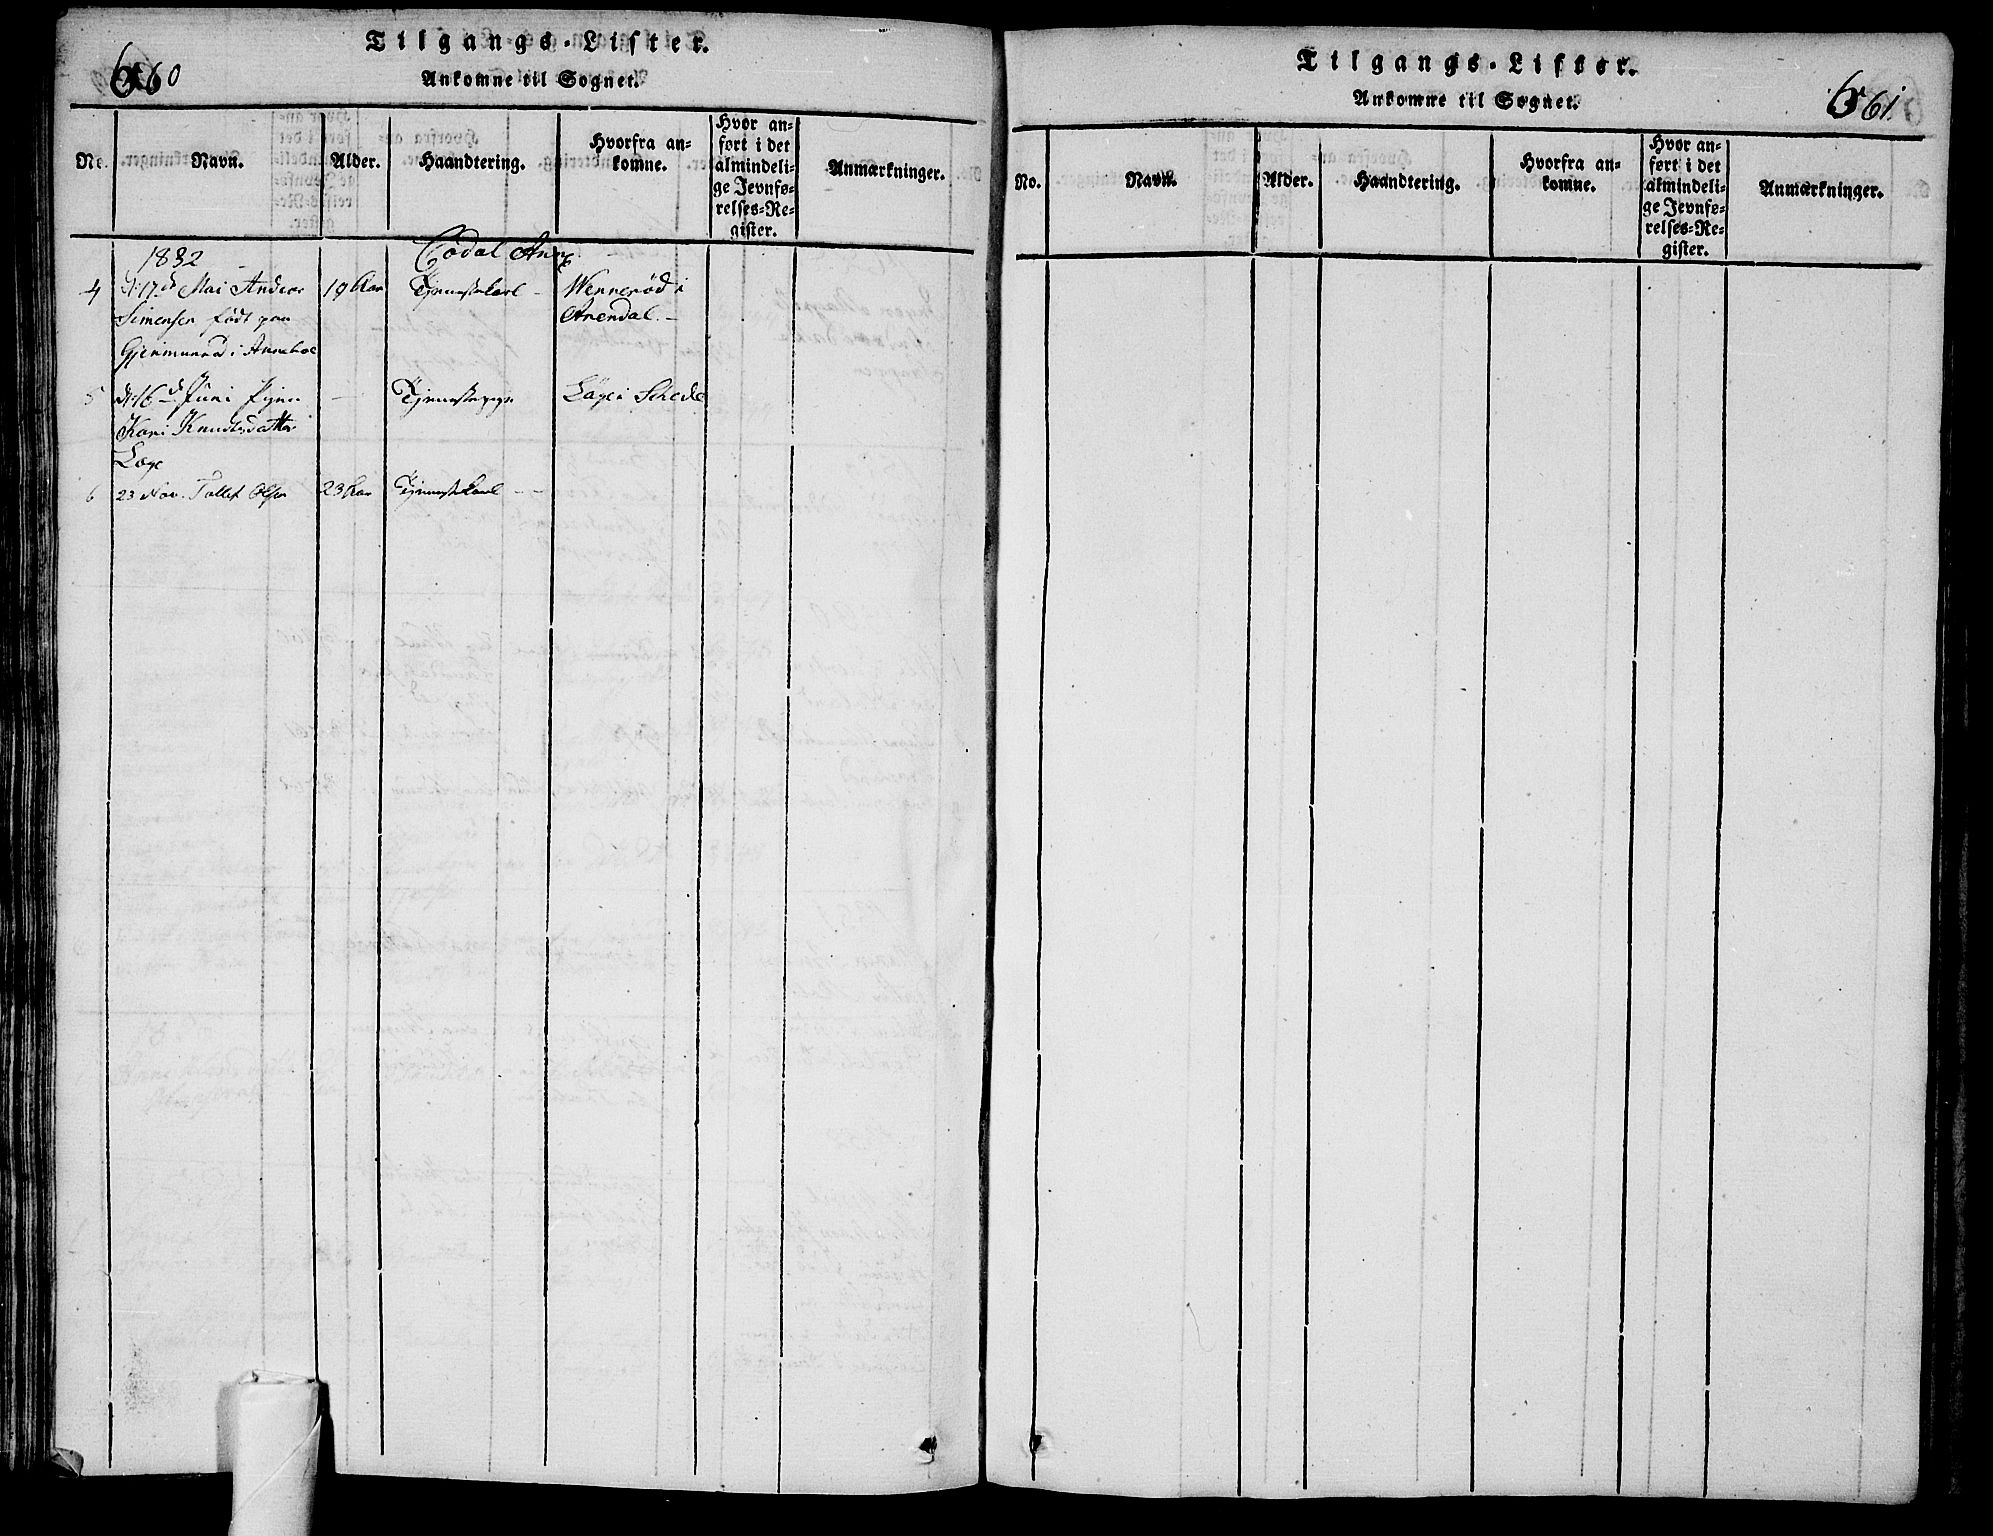 660
Tilgangs-Lister.
Ankomne til Sognet.
No.
Navn.
Alder.
Haandtering.
Hvorfra an=
komne.
Hvor an=
ført i det
almindeli=
ge Jevnfø=
relses=Re=
gister.
Anmærkninger.
1832
4
17 Mai Andeas
Simensen født paa
i
19 Aar
Tjenestekarl
i
Arendal.
5
16 Juni Pigen
Kari Knudsdatter
Læge
Tjenestepige
6
23 Nov. Tollef Olsen
23 Aar
Tjenestekarl
661
Tilgangs-Lister.
Ankomne til Sognet.
No.
Navn.
Alder.
Haandtering.
Hvorfra an=
komne.
Hvor an=
ført i det
almindeli=
ge Jevnfø=
relses=Re=
gister.
Anmærkninger.